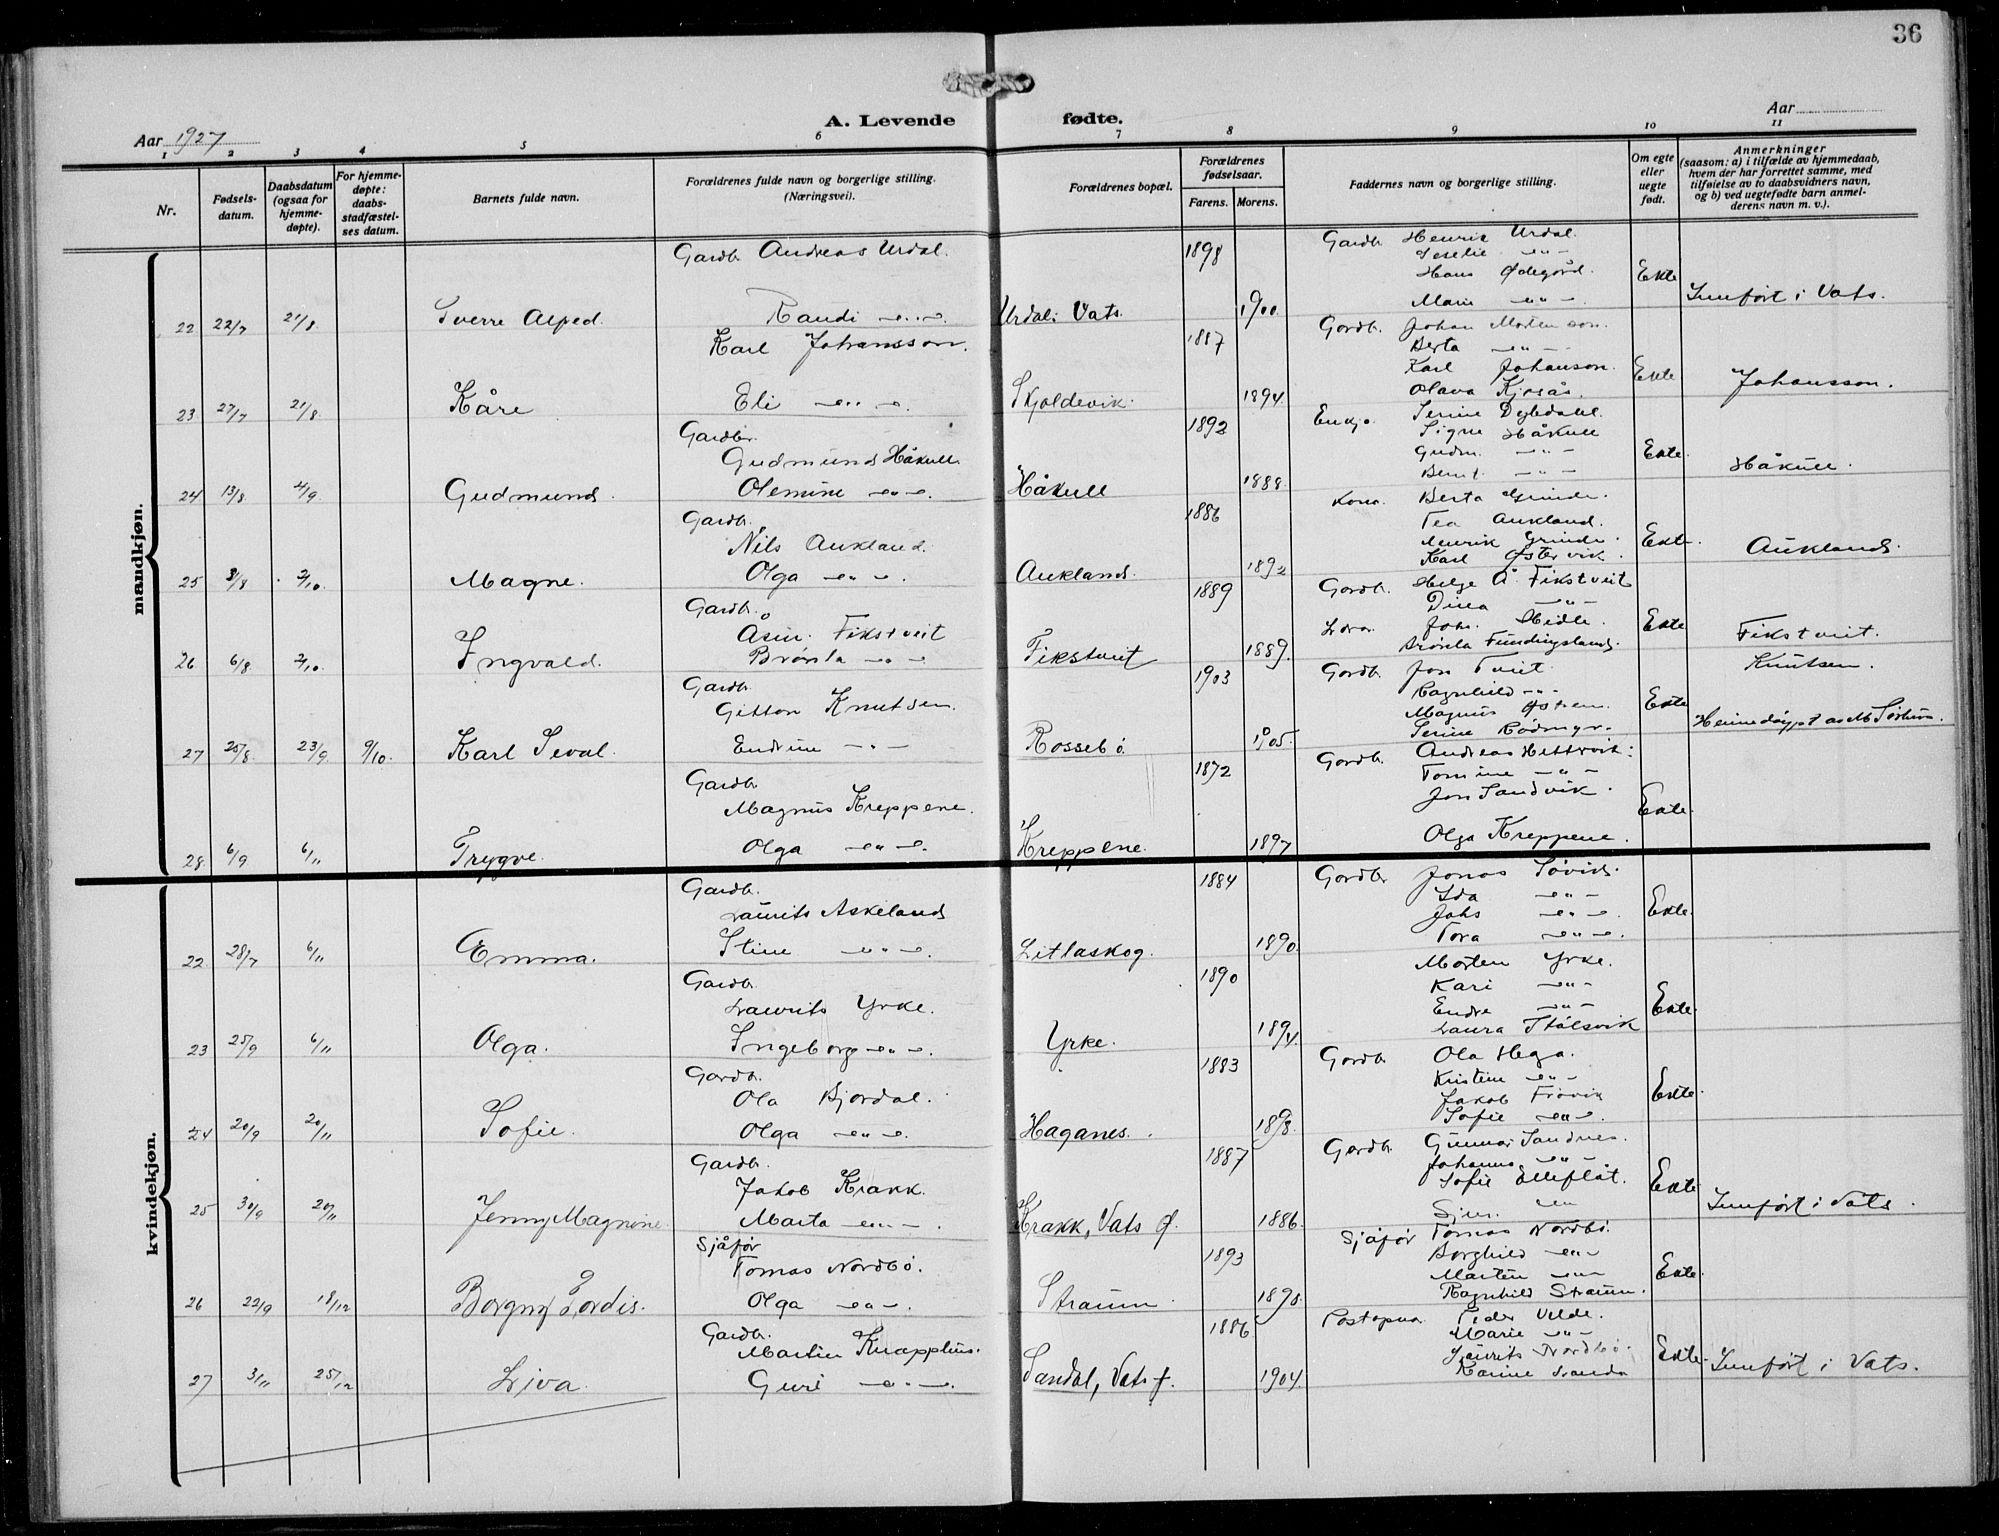 36
A. Levende fødte.
Aar 1927
Aar
1 2 3 4 5 6 7 8 9 10 11
Nr.
Fødsels-
datum.
Daabsdatum
(ogsaa for
hjemme-
døpte).
For hjemme-
døpte:
daabs-
stadfæstel-
ses datum.
Barnets fulde navn.
Forældrenes fulde navn og borgerlige stilling.
(Næringsvei).
Forældrenes bopæl.
Forældrenes
fødselsaar.
Farens. Morens.
Faddernes navn og borgerlige stilling.
Om egte
eller
uegte
født.
Anmerkninger
(saasom: a) i tilfælde av hjemmedaab,
hvem der har forrettet samme, med
tilføielse av to daabsvidners navn,
og b) ved uegtefødte barn anmel-
derens navn m. v.).
mandkjøn.
Gardb. Andreas Urdal. 1898 Gardb. Henrik Urdal.
Hans Ødegård. Ekte
Marie -"-
22 22/7 21/8 Sverre Alfred. Randi -"- Urdal, Vats. 1900 Innført i Vats.
Karl Johansson. 1887 Gardb. Johan Mortenson.
Berta -"-
Karl Johanson. Ekte Johansson.
23 27/7 21/8 Kåre Eli -"- Skjoldevik. 1894 Olava Kjosås.
Gardbr. 1892 Enkja. Serine Dybdahl.
Signe Håkull
Gudmund Håkull Gudm. -"- Ekte. Håkull.
24 13/8 4/9 Gudmund. Olemine -"- Håkull 1888 Bernt. -"-
Gardb. 1886 Kona. Berta Grinde.
Tea Aukland.
Nils Aukland. Henrik Grinde. Ekte. Aukland.
25 8/8 2/10 Magne. Olga -"- Aukland. 1892 Karl Østervik.
Gardb. 1889 Gardb. Helge Å. Fikstveit
Dina -"-
Åsm. Fikstveit Joh. Midle. Ekte Fikstveit.
26 6/8 2/10 Ingvald. Brønla -"- Fikstveit 1889. Brønla Fundingsland.
Gardb. 1903 Gardb. Jon Tveit. Knutsen.
Ragnhild -"-
Gitton Knutsen. Magnus Østrem. Ekte Heimedøypt av M. Sørhus.
27 25/8 23/9 9/10 Karl Seval. Endrine -"- Rossebø. 1905. Serine Rødmyr.
Gardb. 1872 Gardb. Andreas Hettervik.
Tomine -"-
Magnus Kreppene. Jon Sandvik. Ekte.
28. 6/9 6/11 Trygve. Olga -"- Kreppene. 1897 Olga Kreppene.
kvindekjøn.
Gardb. 1884 Gardbr Jonas Søvid.
Ida -"-
Laurits Askeland Johs -"- Ekte.
22 28/7 6/11 Emma. Stine -"- Litlaskog. 1890. Tora -"-
Gardb. 1890 Morten Yrke.
Kari -"-
Laurits Yrke. Endre -"- Ekte.
23 25/9 6/11 Olga. Ingeborg -"- Yrke. 1894. Laura Stølsvik
Gardb. 1883 Gardb. Ola Hega.
Kristine -"-
Ola Bjordal. Jakob Frøvik Ekte.
24 20/9 20/11 Sofie. Olga -"- Haganes. 1898. Sofie -"-
Gardb. 1887 Gardb. Gunnar Sandnes.
Johanna -"-
Jakob Krakk. Sofie Elleflåt. Ekte
25 30/9 20/11 Jenny Magnine. Marta -"- Krakk, Vats f. 1886. -"- Innført i Vats.
Sjåfør 1893 Sjåfør Tomas Nordbø.
Borghild -"-
Tomas Nordbø. Martin -"- Ekte.
26 22/9 18/12 Borgny Jordis. Olga -"- Straum. 1898. Ragnhild Straum.
Gardb. 1886 Postopna. Peder Velde.
Marie -"-
Martin Knapphus. Laurits Nordbø. Ekte. Innført i Vats.
27 3/11 25/12 Liva. Guri -"- Sandal, Vats f. 1904. Karine